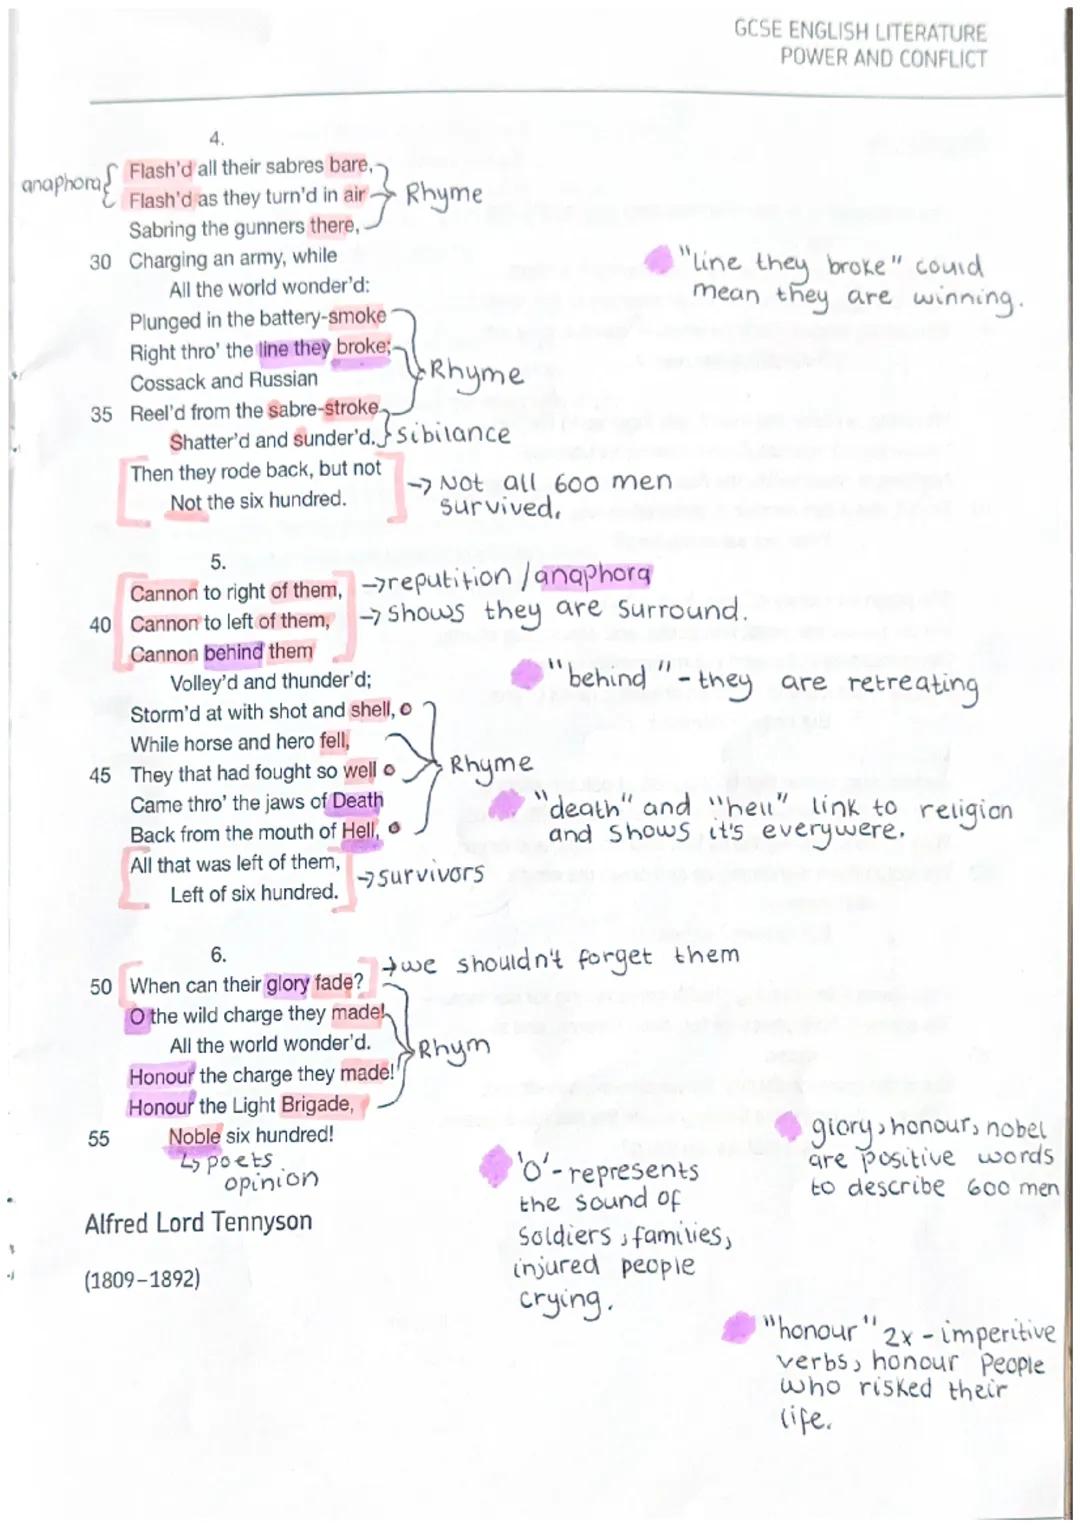 GCSE ENGLISH LITERATURE
POWER AND CONFLICT
4.
anaphora
Flash'd all their sabres bare,
Flash'd as they turn'd in air
Rhyme
Sabring the gunners there,
30 Charging an army, while
All the world wonder'd:
"line they broke" could
mean they are winning.
Plunged in the battery-smoke
Right thro' the line they broke;
Cossack and Russian
Rhyme
35 Reel'd from the sabre-stroke
Shatter'd and sunder'd.
Sibilance
Then they rode back, but not
Not the six hundred.
→ Not all 600 men
survived.
5.
Cannon to right of them,
40 Cannon to left of them,
Cannon behind them
→reputition / anaphora
→ shows they are surround.
Volley'd and thunder'd;
"behind" - they are retreating
Storm'd at with shot and shell,
While horse and hero fell,
45 They that had fought so well
Rhyme
Came thro' the jaws of Death
Back from the mouth of Hell,
"death" and "hell" link to religion
and shows it's everywere.
All that was left of them,
Left of six hundred.
→survivors
6.
50 When can their glory fade?
→we shouldn't forget them
O the wild charge they made!
All the world wonder'd.
Rhym
Honour the charge they made!
Honour the Light Brigade,
55 Noble six hundred!
↳ poets
opinion
'O' - represents
the sound of
soldiers, families,
injured people
crying.
glory, honour, nobel
are positive words
to describe 600 men
Alfred Lord Tennyson
(1809–1892)
"honour" 2x - imperitive
verbs, honour people
who risked their
life.